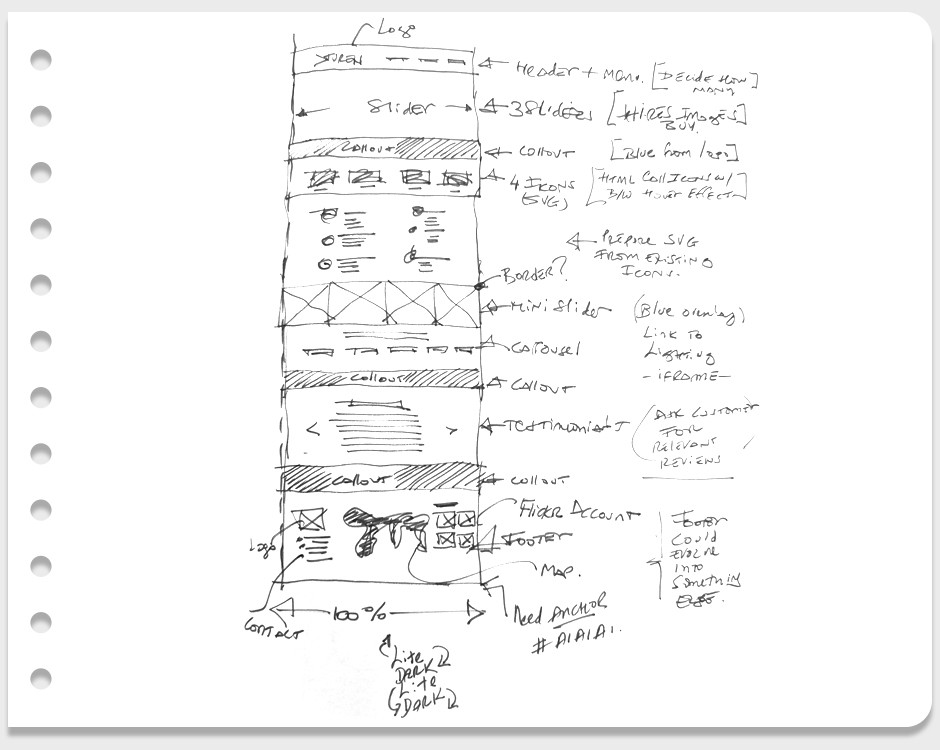 Logo
Header + Menu. [Decide How Many]
Slider
3 Sliders [Hires Images Buy.]
Callout
Callout [Blue from logo]
4 Icons (SVG)
HTML Coll Icons w/ B/W Hover Effect
Prepare SVG
From Existing
Icons.
Border?
Mini Slider (Blue overlay)
Link To
Lightning
- iFrame -
Carousel
Callout
Callout
Testimonials
Ask Customer
For
Relevant
Reviews
Callout
Callout
Flickr Account
Footer
Map.
Footer
Could
Evolve
Into
Something
Else.
Logo
Contact
100%
Need Anchor
# A1A1A1.
Lite
Dark
Lite
Dark